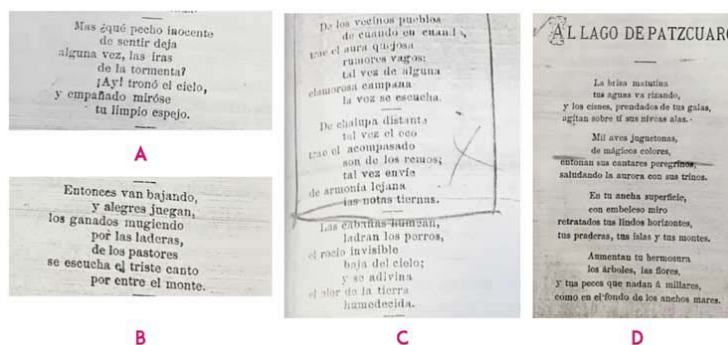 Mas ¿qué pecho inocente
de sentir deja
alguna vez, las iras
de la tormenta?
¡Ay! tronó el cielo,
y empañado miróse
tu limpio espejo.
A
Entonces van bajando,
y alegres juegan,
los ganados mugiendo
por las laderas,
de los pastores
se escucha el triste canto
por entre el monte.
B
De los vecinos pueblos
de cuando en cuando,
trae el aura quejosa
rumores vagos;
tal vez de alguna
clamorosa campana
la voz se escucha.
De chalupa distante
tal vez el eco
trae el acompasado
son de los remos;
tal vez envía
de armonía lejana
las notas tiernas.
Las cabañas humean,
ladran los perros,
el rocío invisible
baja del cielo;
y se adivina
el olor de la tierra
humedecida.
C
AL LAGO DE PATZCUARO
La brisa matutina
tus aguas va rizando,
y los cisnes, prendados de tus galas,
agitan sobre tí sus níveas alas.
Mil aves juguetonas,
de mágicos colores,
entonan sus cantares peregrinos,
saludando la aurora con sus trinos.
En tu ancha superficie,
con embeleso miro
retratados tus lindos horizontes,
tus praderas, tus islas y tus montes.
Aumentan tu hermosura
los árboles, las flores,
y tus peces que nadan á millares,
como en el fondo de los anchos mares.
D